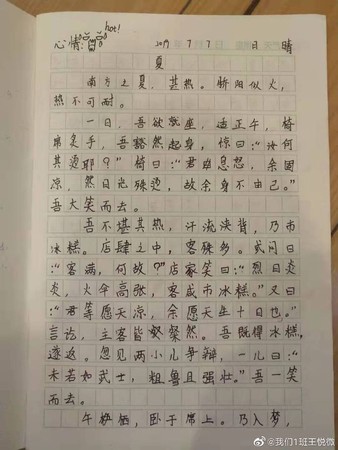 心情: hot!
2019 7 7 日 晴
夏
南方之夏,甚热。骄阳似火,
热不可耐。
一日,吾欲就座,适正午,椅
席炙手,吾豁然起身,惊曰:“汝何
其烫耶?”椅曰:“君毋息怒,余固
凉,然日光殊烫,故余身不由己。”
吾大笑而去。
吾不堪其热,汗流浃背,乃市
冰糕。店肆之中,客殊多。或问曰
:“客满,何故?”店家笑曰:“烈日炎
炎,火伞高张,客咸市冰糕。”又曰
:“君等愿天凉,余愿天生十日也。”
言讫,主客皆粲然。吾既得冰糕,
遂返。忽见两小儿争辩,一儿曰:“
未若如武士,粗兽且强壮。”吾一笑
而去。
午梅栖,卧于席上。乃入梦,
@我们1班王悦微